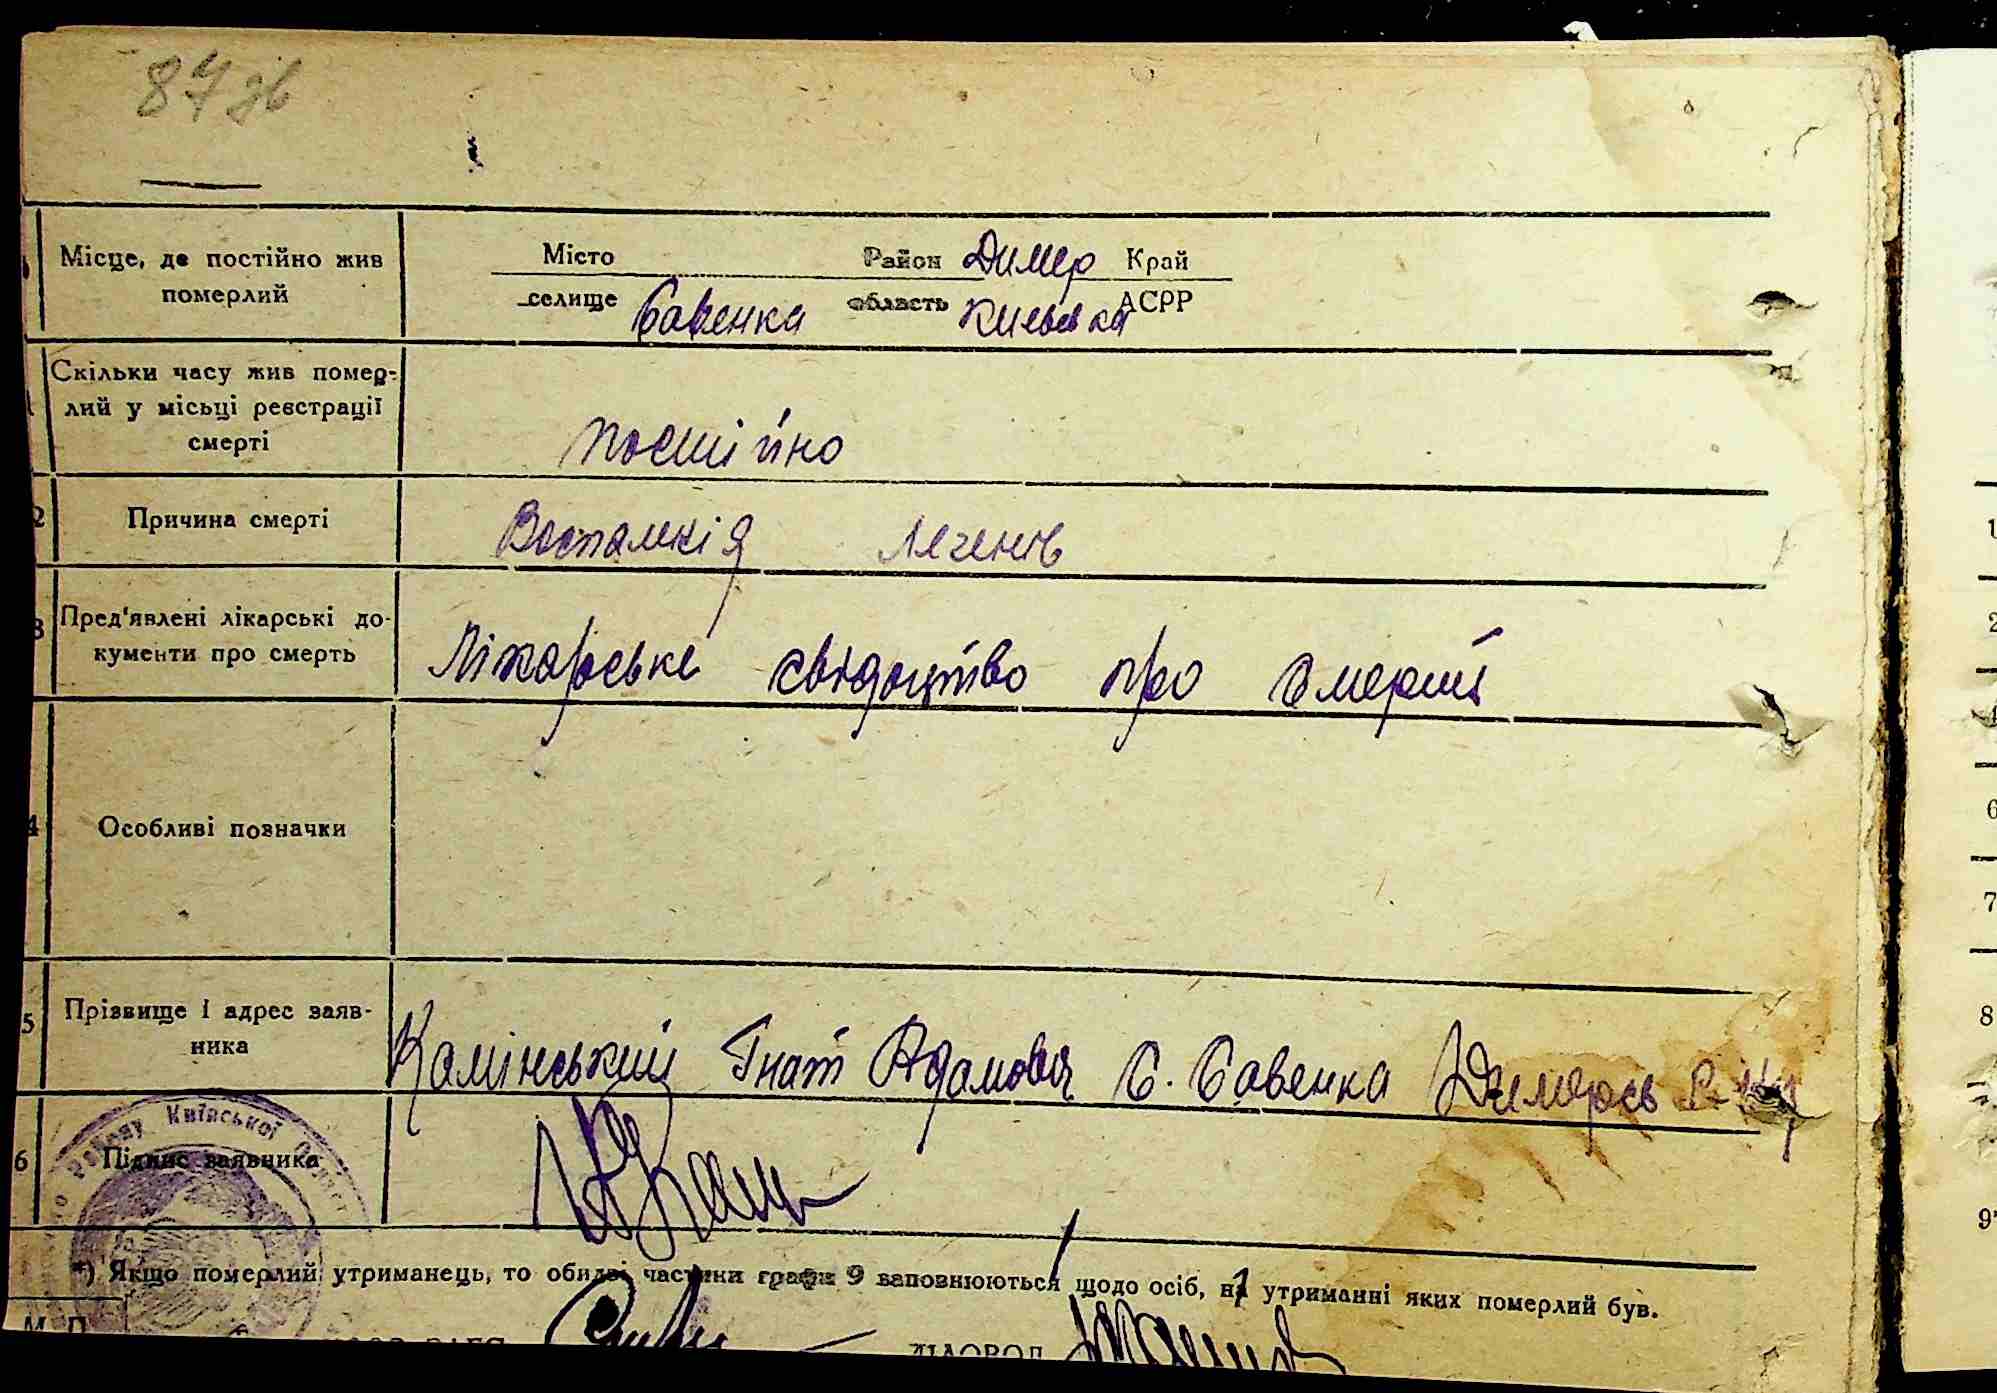 87 зв
Місце, де постійно жив
померлий
Місто Район Димер Край
селище Савенка область Киевська АСРР
Скільки часу жив помер-
лий у місьці реєстрації
смерті
постійно
2 Причина смерті
Воспаленія легенів
3 Пред'явлені лікарські до-
кументи про смерть
Лікарське свідоцтво про смерть
4 Особливі позначки
5 Прізвище і адрес заяв-
ника
Камінський Гнат Адамович с. Савенка Димерсь
6 Підпис заявника
Району Київської
*) Якщо померлий утриманець, то обидві частини графи 9 заповнюються щодо осіб, на утриманні яких померлий був.
М. П.
ЗАГС ДІЛОВОД
1
2
6
7
8
9